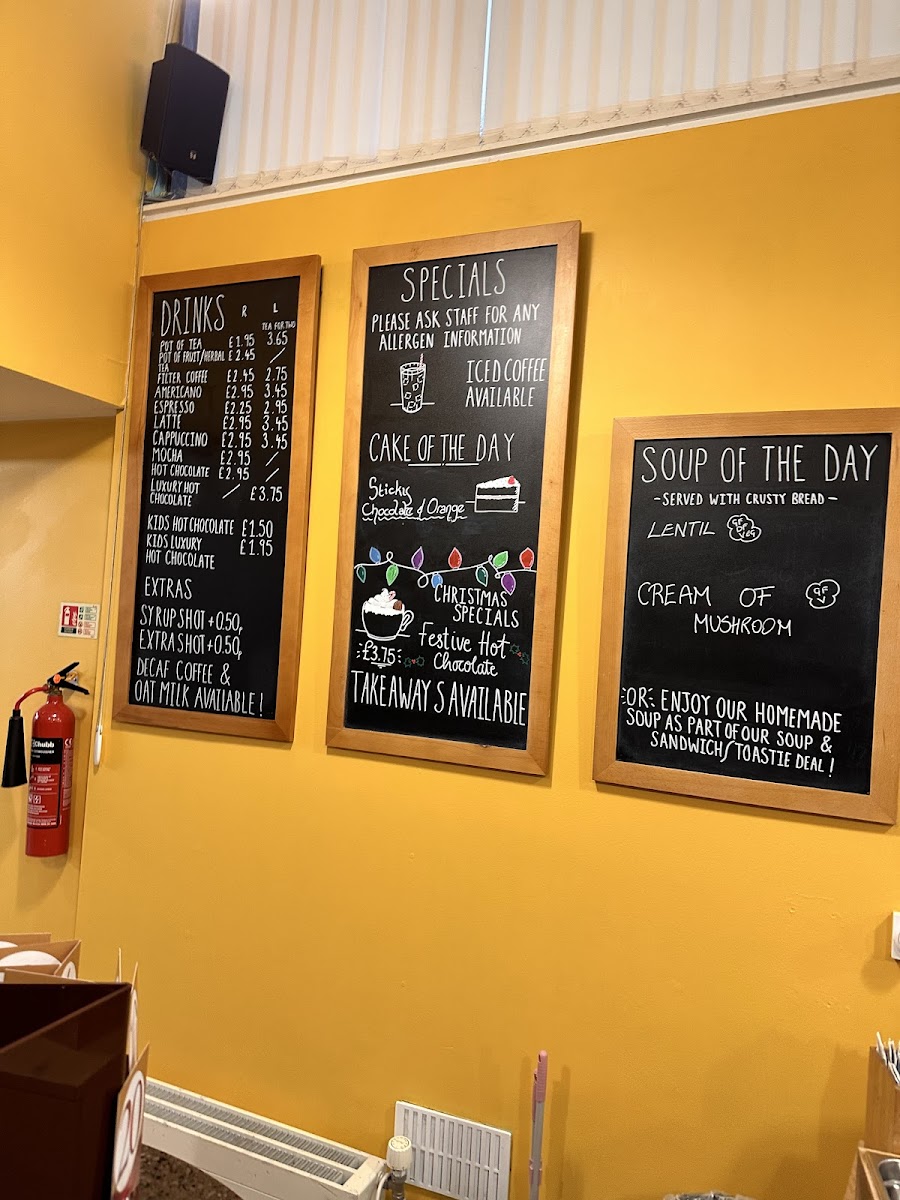 DRINKS R L
TEA FOR TWO
POT OF TEA £1.95 3.65
POT OF FRUIT/HERBAL £2.45 /
TEA
FILTER COFFEE £2.45 2.75
AMERICANO £2.95 3.45
ESPRESSO £2.25 2.95
LATTE £2.95 3.45
CAPPUCCINO £2.95 3.45
MOCHA £2.95 /
HOT CHOCOLATE £2.95 /
LUXURY HOT / £3.75
CHOCOLATE
KIDS HOT CHOCOLATE £1.50
KIDS LUXURY £1.95
HOT CHOCOLATE
EXTRAS
SYRUP SHOT +0.50p
EXTRA SHOT +0.50p
DECAF COFFEE &
OAT MILK AVAILABLE!
SPECIALS
PLEASE ASK STAFF FOR ANY
ALLERGEN INFORMATION
ICED COFFEE
AVAILABLE
CAKE OF THE DAY
Sticky
Chocolate & Orange
CHRISTMAS
SPECIALS
Festive Hot
Chocolate
£3.75
TAKEAWAY S AVAILABLE
SOUP OF THE DAY
- SERVED WITH CRUSTY BREAD -
LENTIL GF DF VEG
CREAM OF GF V
MUSHROOM
OR ENJOY OUR HOMEMADE
SOUP AS PART OF OUR SOUP &
SANDWICH/TOASTIE DEAL!
Chubb
20